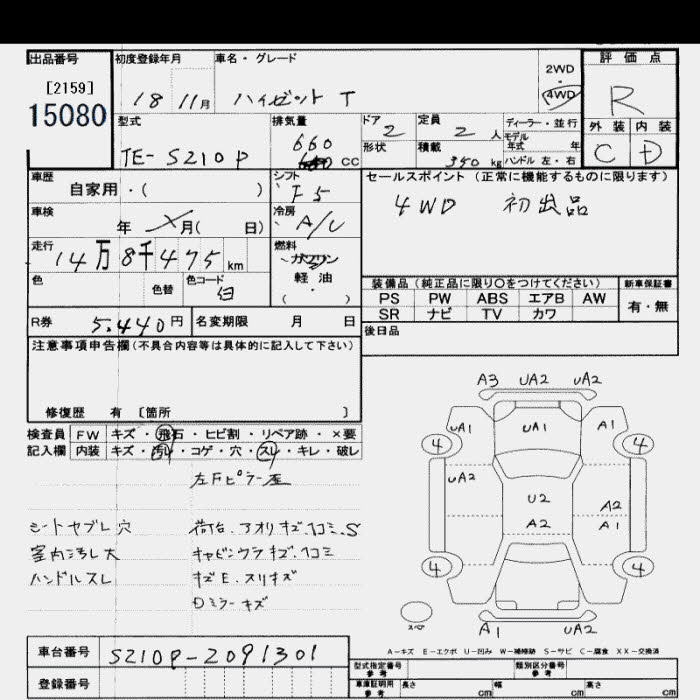 出品番号 初度登録年月 車名・グレード 評価点
[2159]
15080
18 11月 ハイゼット T
2WD
4WD
R
型式 排気量 ドア 定員 ディーラー・並行 外装 内装
TE-S210P 660 cc 2 2人 モデル年式 年 C D
形状 積載 350kg ハンドル 左・右
車歴 シフト セールスポイント (正常に機能するものに限ります)
自家用・( ) F5
4WD 初出品
車検 冷房
年 月( 日) A/C
走行 燃料
14万8千475km ガソリン
軽油
( )
色 色替 色コード
白
装備品 (純正品に限り○をつけてください) 新車保証書
PS PW ABS エアB AW 有・無
SR ナビ TV カワ
R券 5,440円 名変期限 月 日 後日品
注意事項申告欄 (不具合内容等は具体的に記入して下さい)
修復歴 有 [箇所 ]
検査員 FW キズ・飛石・ヒビ割・リペア跡・×要
記入欄 内装 キズ・汚れ・コゲ・穴・スレ・キレ・破レ
左Fピラー
シートヤブレ 穴 荷台、アオリキズ、凹ミ、S
室内汚れ大 キャビンウラキズ、凹ミ
ハンドルスレ キズE、スリキズ
Dミラーキズ
A3 UA2 UA2
UA1 UA1 A1
4 4
UA2
U2 A2
A2 A1
4 4
スペア
A1 UA2
A-キズ E-エクボ U-凹み W-補修跡 S-サビ C-腐食 XX-交換済
車台番号 S210P-2091301
登録番号
型式指定番号 参考 類別区分番号 参考
車庫証明用 参考 長さ cm 幅 cm 高さ cm